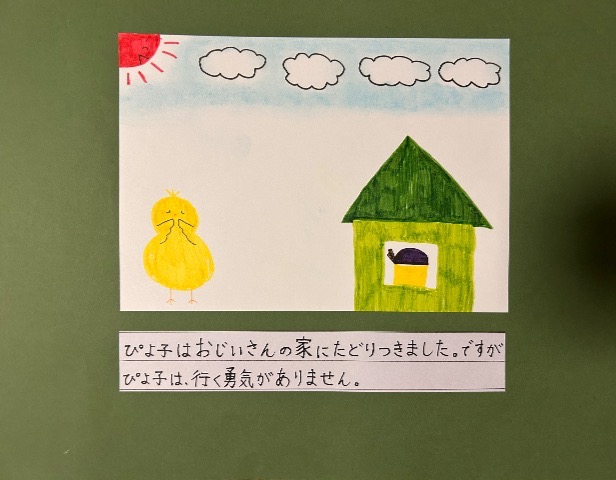 ぴよ子はおじいさんの家にたどりつきました。ですが
ぴよ子は、行く勇気がありません。